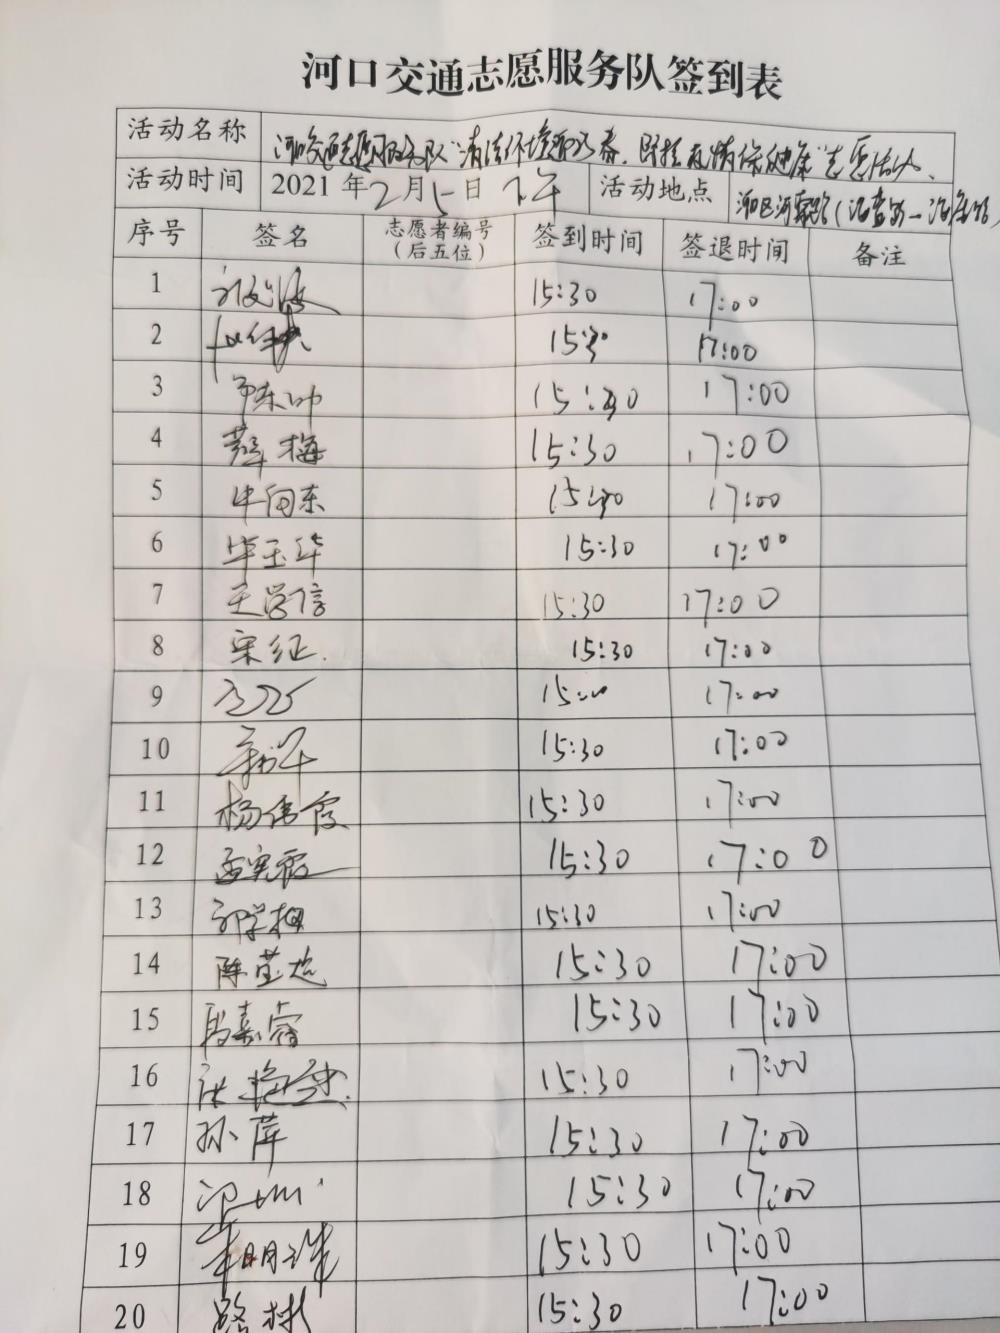 河口交通志愿服务队签到表
活动名称 河口交通志愿服务队"清洁环境迎新春,防控疫情保健康"志愿活动
活动时间 2021年2月5日 下午 活动地点 河口区河

序号 签名 志愿者编号(后五位) 签到时间 签退时间 备注
1 15:30 17:00
2 15:30 17:00
3 15:30 17:00
4 薛梅 15:30 17:00
5 牛向东 15:30 17:00
6 毕玉华 15:30 17:00
7 王学信 15:30 17:00
8 宋征 15:30 17:00
9 15:30 17:00
10 15:30 17:00
11 杨伟霞 15:30 17:00
12 孟宪霞 15:30 17:00
13 15:30 17:00
14 陈莹 15:30 17:00
15 段嘉睿 15:30 17:00
16 15:30 17:00
17 孙萍 15:30 17:00
18 15:30 17:00
19 明珠 15:30 17:00
20 路彬 15:30 17:00